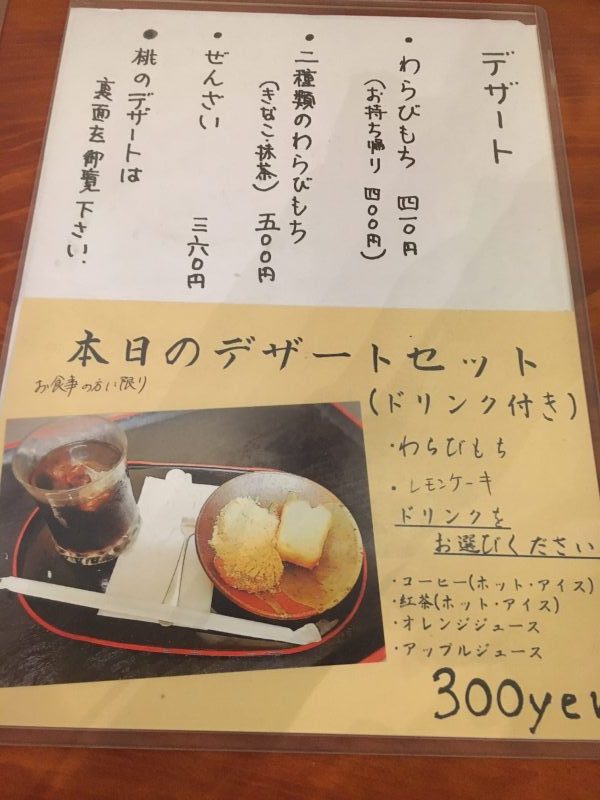 デザート
・わらびもち 四一〇円
(お持ち帰り 四〇〇円)
・二種類のわらびもち
(きなこ・抹茶) 五〇〇円
・ぜんざい 三六〇円
・桃のデザートは
裏面を御覧下さい.
本日のデザートセット
お食事の方い限り
(ドリンク付き)
・わらびもち
・レモンケーキ
ドリンクを
お選びください
・コーヒー(ホット・アイス)
・紅茶(ホット・アイス)
・オレンジジュース
・アップルジュース
300yen